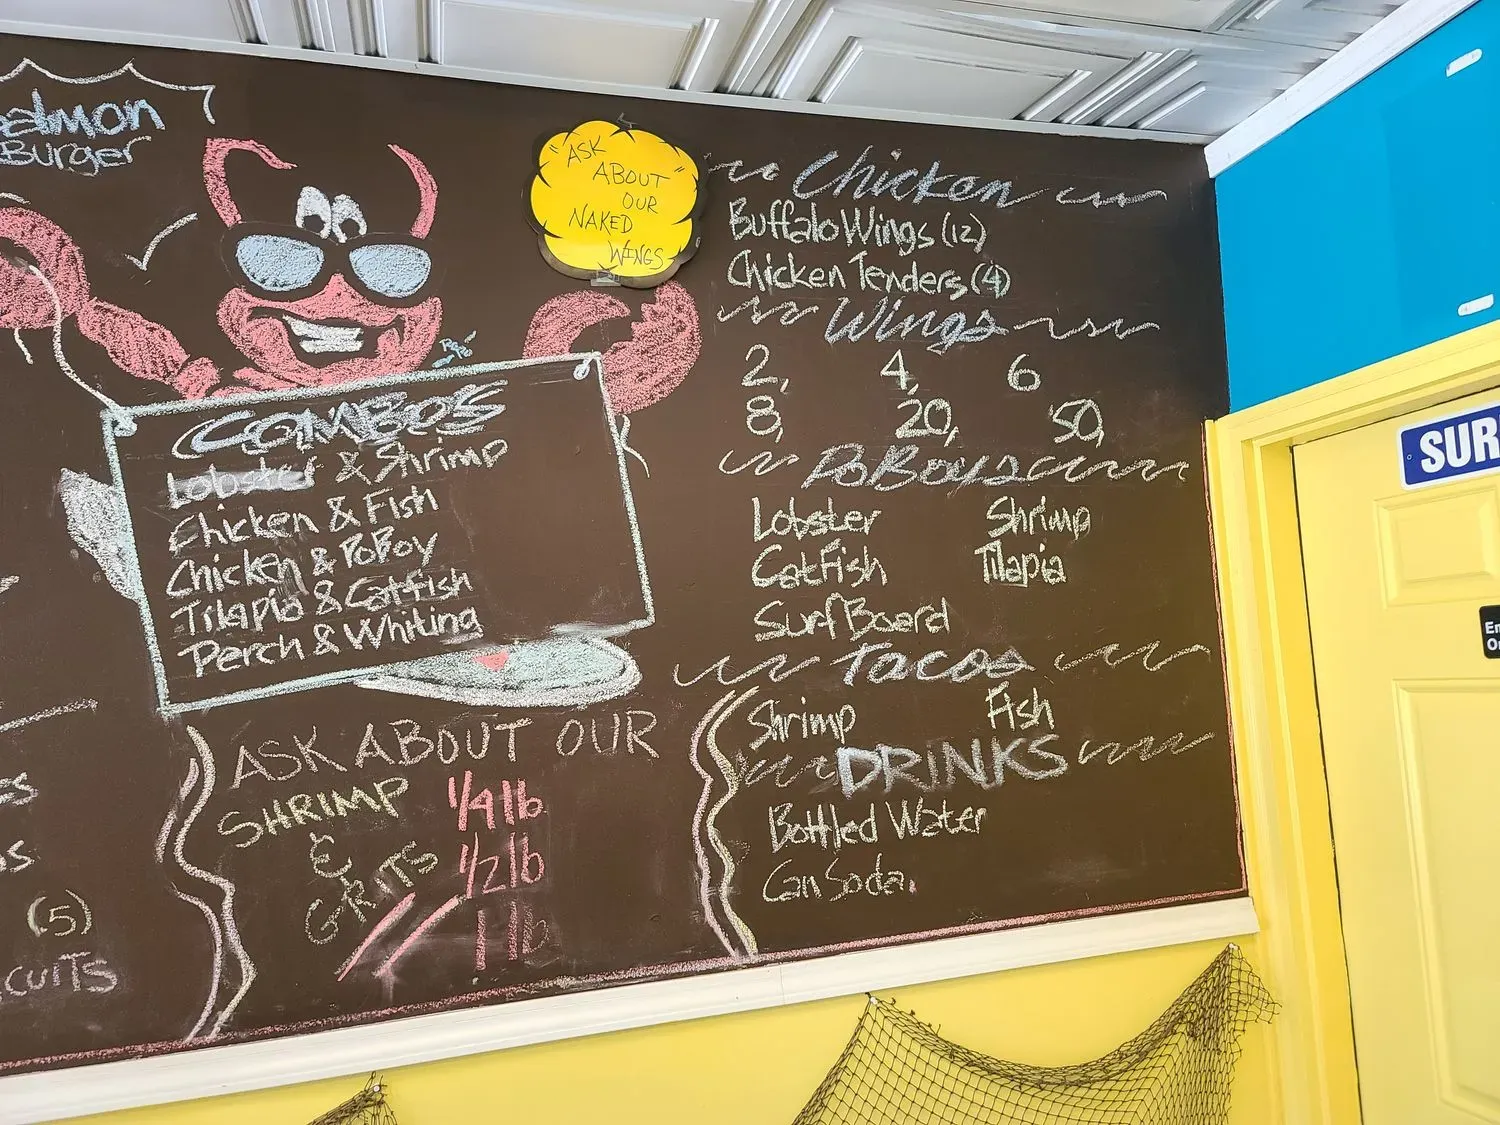 Burger
"ASK
ABOUT"
OUR
NAKED
WINGS
COMBOS
Lobster & Shrimp
Chicken & Fish
Chicken & PoBoy
Tilapia & Catfish
Perch & Whiting
ASK ABOUT OUR
SHRIMP
&
GRITS
1/4 lb
1/2 lb
1 lb
(5)
Chicken
Buffalo Wings (12)
Chicken Tenders (4)
Wings
2, 4, 6
8, 20, 50,
PoBoys
Lobster Shrimp
CatFish Tilapia
Surf Board
Tacos
Shrimp Fish
DRINKS
Bottled Water
Can Soda.
SUR